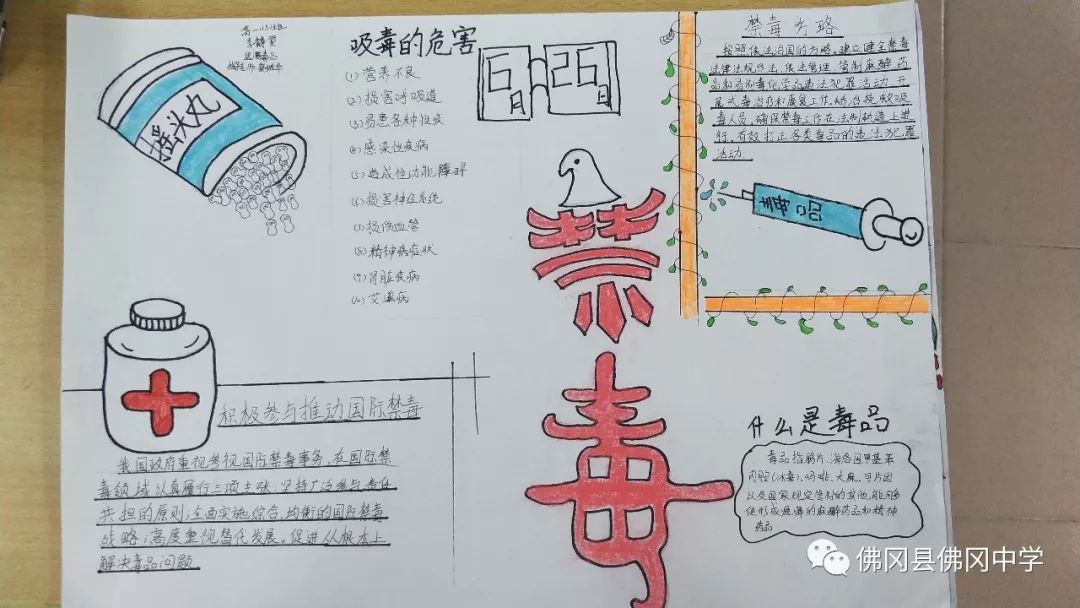 摇头丸
吸毒的危害
(1) 营养不良
(2) 损害呼吸道
(3) 易患各种性疾
(4) 感染性疾病
(5) 造成性功能障碍
(6) 损害神经系统
(7) 损伤血管
(8) 精神病症状
(9) 肾脏疾病
(10) 艾滋病
6月26日
禁毒方略
按照依法治国的方略,建立健全禁毒
法律法规
依法管理、管制麻醉药
违法犯罪活动
毒人员,确保禁毒工作在法制轨道上进
行,有效打击各类毒品的违法犯罪
活动
毒品
禁
毒
积极参与推动国际禁毒
我国政府重视参与国际禁毒事务,在国际禁
毒领域认真履行三项主张:坚持广泛参与责任
共担的原则;全面实施综合、均衡的国际禁毒
战略;高度重视替代发展,促进从根本上
解决毒品问题
什么是毒品
毒品指鸦片、海洛因甲基苯
丙胺(冰毒)、吗啡、大麻、可卡因
以及国家规定管制的其他,能够
使形成瘾癖的麻醉药品和精神
药品
佛冈县佛冈中学